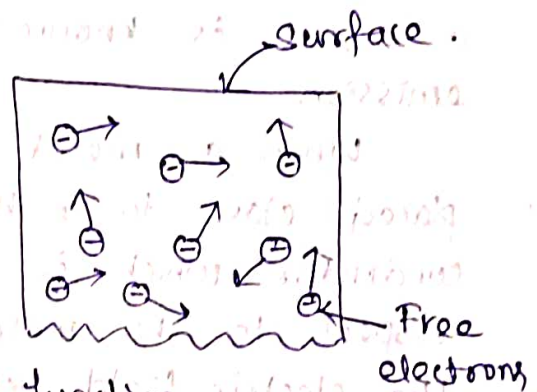 Surface.
Free
electrons